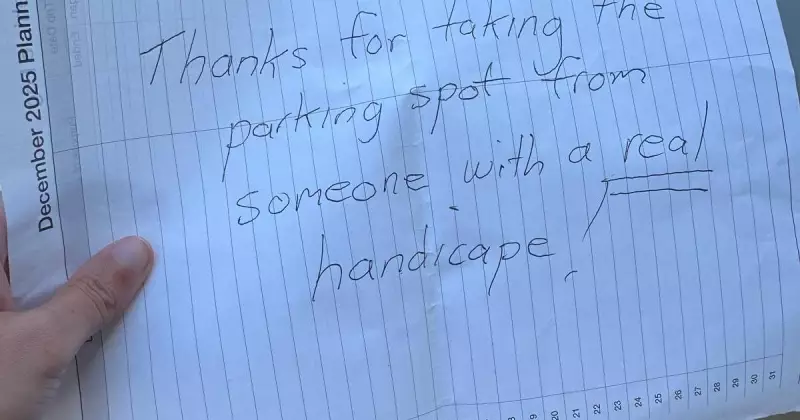 December 2025 Plann
Thanks for taking the
parking spot from
someone with a real
handicape.
9
20
21
22
23
24
25
26
27
28
29
30
31